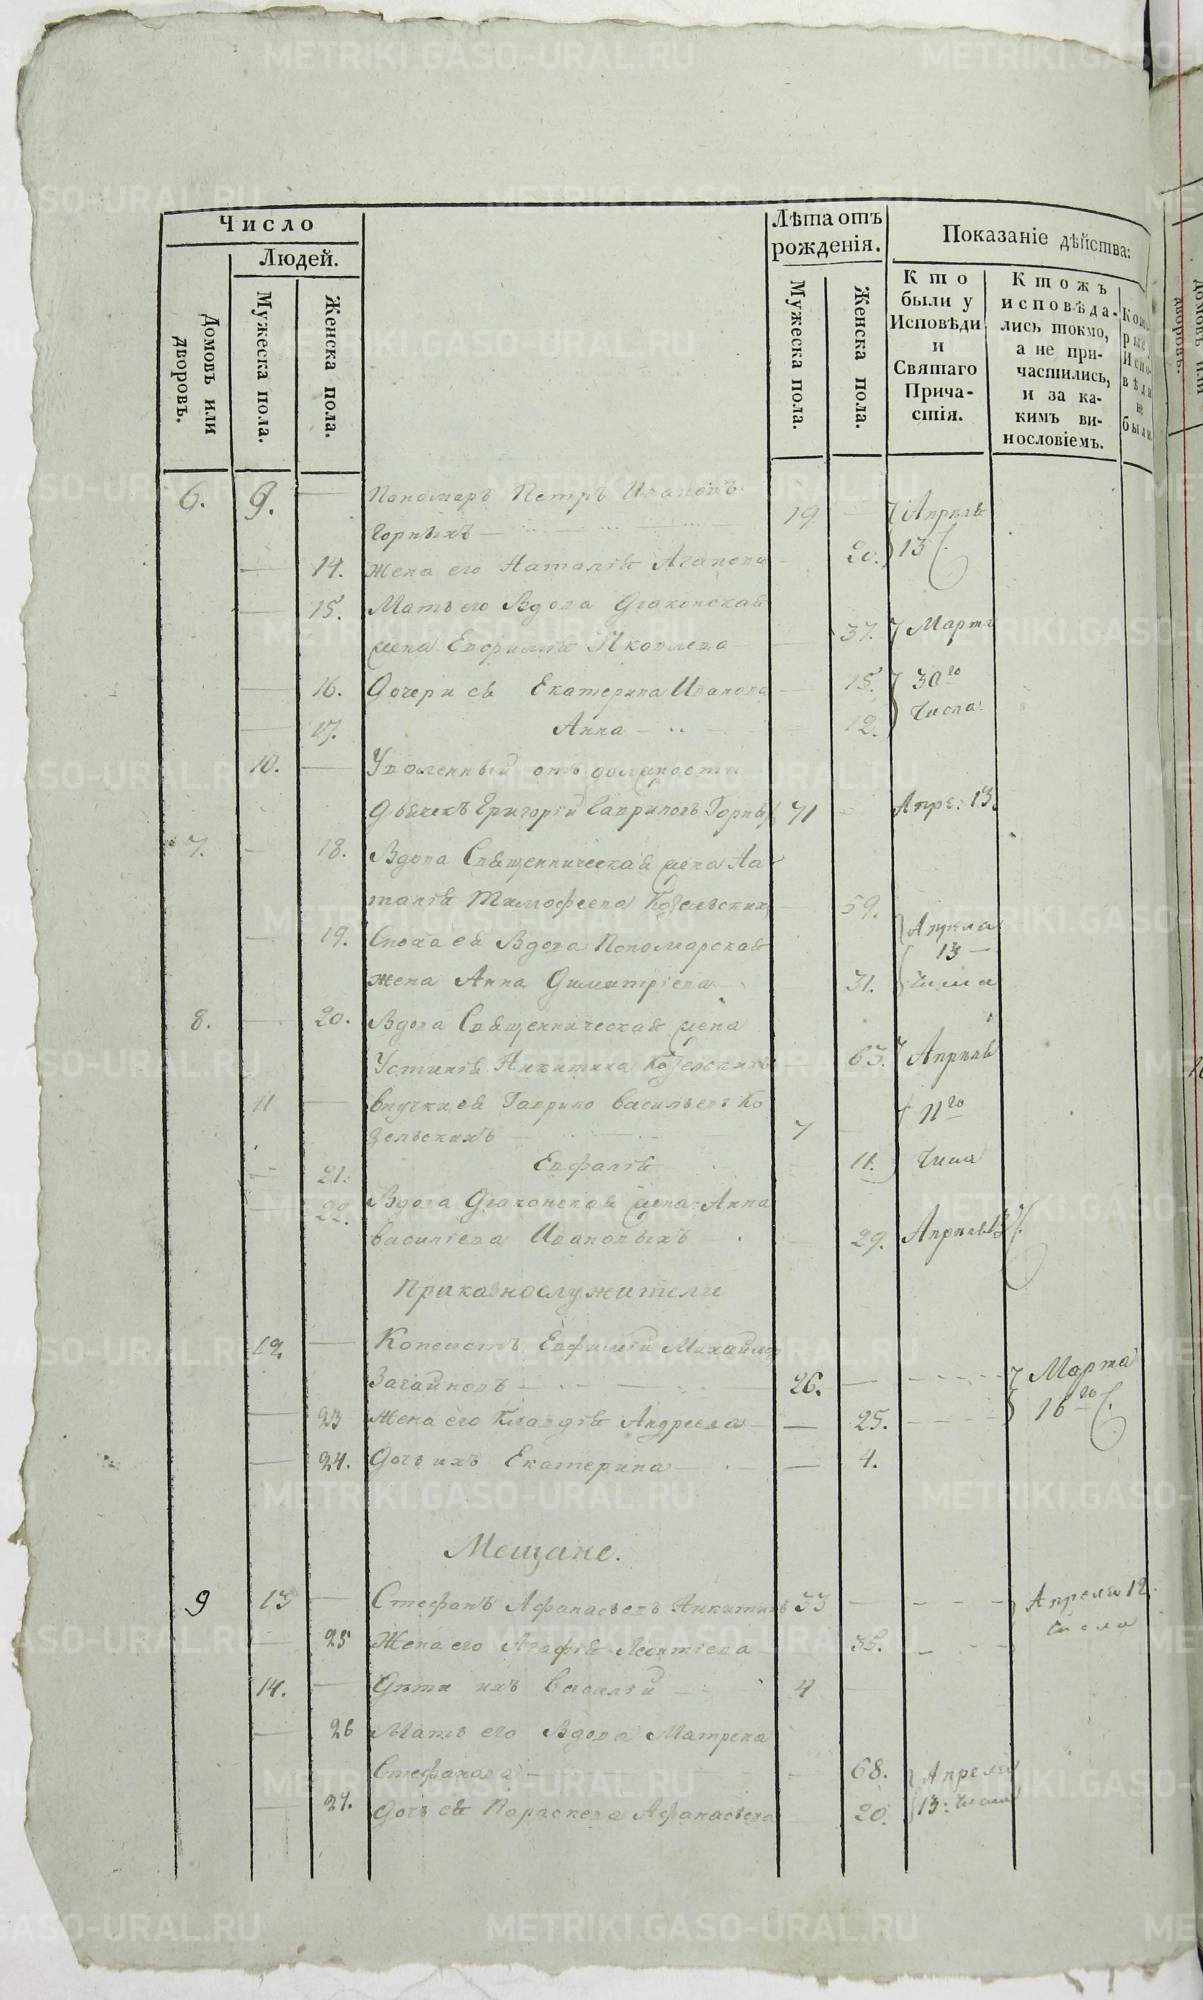 Число
Людей.
Домовъ или дворовъ.
Мужеска пола.
Женска пола.
Лѣта отъ рожденія.
Мужеска пола.
Женска пола.
Показаніе дѣйства:
Кто были у Исповѣди и Святаго Причастія.
Ктожъ исповѣдались токмо, а не причастились, и за какимъ винословіемъ.
Которые Исповѣди не были.
6. 9. — Пономаръ Петръ Ивановъ
Горныхъ — 19. — Апрѣля
14. Жена его Наталія Агапова 20. 13
15. Мать его Вдова Діаконская
жена Евфимія Яковлева 37. Марта
16. Дочери ея Екатерина Иванова 15. 30го
17. Анна 12. Числа
10. — Уволенный отъ должности
Дьячекъ Григорій Гавриловъ Горныхъ 71 — Апре: 13.
7. — 18. Вдова Священническая жена На
талія Тимофеева Козельскихъ 59.
19. Сноха ея Вдова Пономарская Апрѣля 13
жена Анна Димитріева 31. Числа
8. — 20. Вдова Священническая жена
Устинія Никитина Козельскихъ 63. Апрѣля
11 — Внучки ея Гаврило Васильевъ Ко 11го
зельскихъ — 7
21. Евфалія 11. Числа
22. Вдова Діаконская жена Анна
Василіева Ивановыхъ 29. Апрѣля
Приказнослужители
12. — Копеистъ Евфимій Михайлов
Загайновъ — 26. — Марта
23 Жена его Клавдія Андреева — 25. 16го
24. Дочь ихъ Екатерина — 4.
Мещане.
9 13 — Стефанъ Афанасьевъ Никитинъ 33 — Апреля 12.
25 Жена его Агафія Леонтіева 35. Числа
14. — Дети ихъ Василій — 4
26 Мать его Вдова Матрена
Стефанова — 68. Апреля
27. Дочь ея Параскева Афанасьева 20. 13: Числа
METRIKI.GASO-URAL.RU